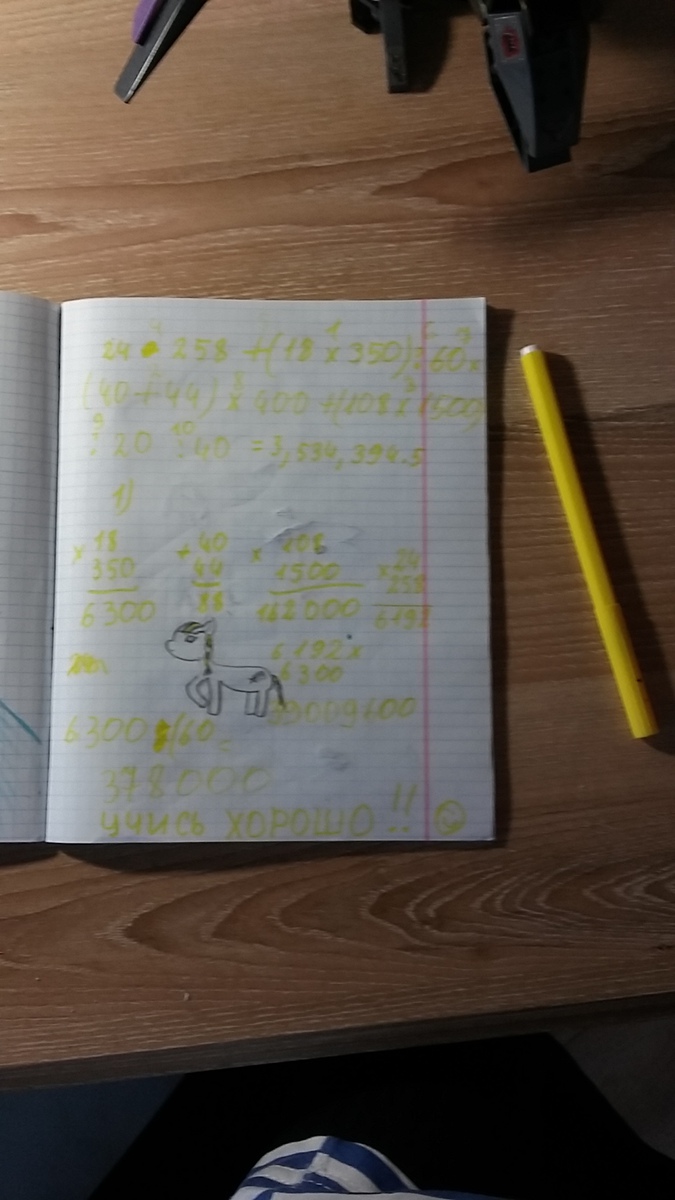 24 • 258 + (18 x 350) : 60 x
(40 + 44) x 400 + (108 x 1500)
: 20 : 40 = 3,534,394.5
1)
x 18 + 40 x 108 x 24
350 44 1500 258
6300 88 162000 6192
6192 x
6300
39009600
6300 : (60 =
378000
УЧИСЬ ХОРОШО !!